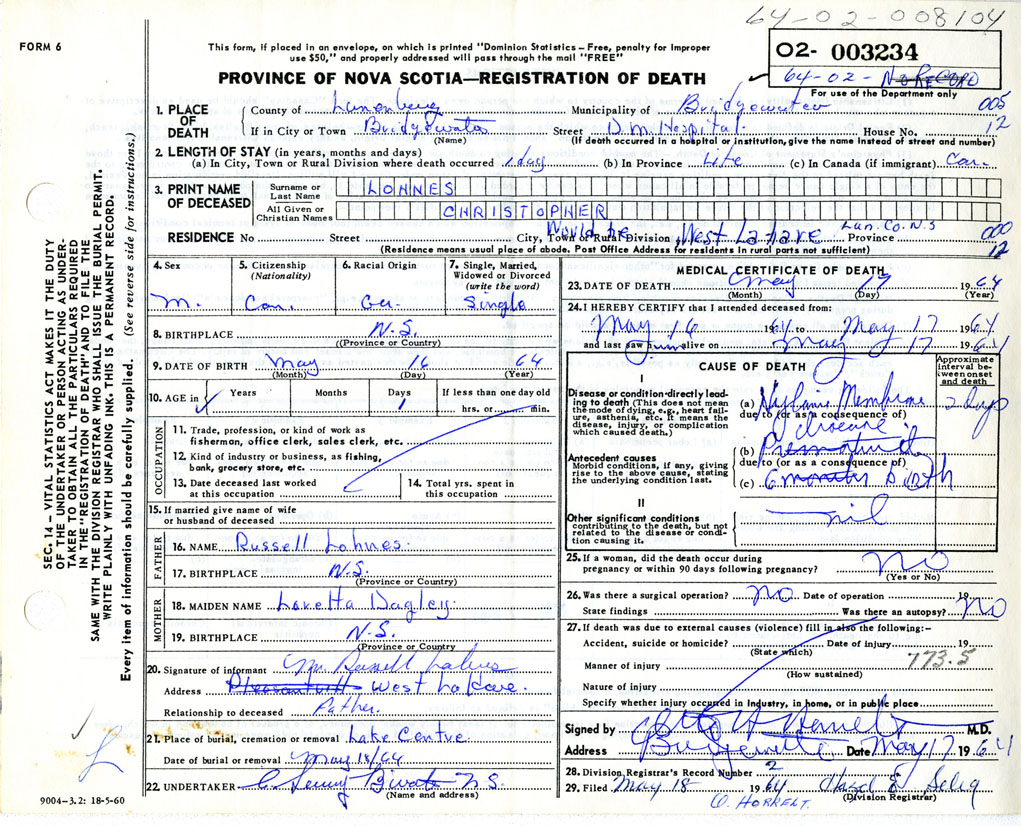 64-02-008104
FORM 6
This form, if placed in an envelope, on which is printed "Dominion Statistics – Free, penalty for improper
use $50," and properly addressed will pass through the mail "FREE"
02- 003234
64-02- NO RECORD
For use of the Department only
PROVINCE OF NOVA SCOTIA—REGISTRATION OF DEATH
1. PLACE OF DEATH
County of Lunenburg Municipality of Bridgewater 005
If in City or Town Bridgewater Street D.M. Hospital. House No. 12
(Name) (If death occurred in a hospital or institution, give the name instead of street and number)
2. LENGTH OF STAY (in years, months and days)
(a) In City, Town or Rural Division where death occurred 1 day (b) In Province Life (c) In Canada (if immigrant) Can.
3. PRINT NAME OF DECEASED
Surname or Last Name LOHNES
All Given or Christian Names CHRISTOPHER
Would be Lun. Co. N.S 000
RESIDENCE No Street City, Town or Rural Division West Lahave Province 12
(Residence means usual place of abode. Post Office Address for residents in rural parts not sufficient)
4. Sex
M.
5. Citizenship
(Nationality)
Can.
6. Racial Origin
Ger.
7. Single, Married, Widowed or Divorced
(write the word)
Single
8. BIRTHPLACE N.S.
(Province or Country)
9. DATE OF BIRTH May 16 64
(Month) (Day) (Year)
10. AGE in Years Months Days If less than one day old
1 hrs. or min.
OCCUPATION
11. Trade, profession, or kind of work as
fisherman, office clerk, sales clerk, etc.
12. Kind of industry or business, as fishing,
bank, grocery store, etc.
13. Date deceased last worked
at this occupation
14. Total yrs. spent in
this occupation
15. If married give name of wife
or husband of deceased
FATHER
16. NAME Russell Lohnes.
17. BIRTHPLACE N.S.
(Province or Country)
MOTHER
18. MAIDEN NAME Loretta Dagley.
19. BIRTHPLACE N.S.
(Province or Country)
20. Signature of informant Mr. Russell Lohnes
Address Pleasantville West Lahave.
Relationship to deceased Father.
21. Place of burial, cremation or removal Lake Centre
Date of burial or removal May 18/64
22. UNDERTAKER N.S.
(Name and address)
9004-3.2: 18-5-60
SEC. 14 – VITAL STATISTICS ACT MAKES IT THE DUTY
OF THE UNDERTAKER OR PERSON ACTING AS UNDER-
TAKER TO OBTAIN ALL THE PARTICULARS REQUIRED
IN THE "REGISTRATION OF DEATH" AND TO FILE THE
SAME WITH THE DIVISION REGISTRAR WHO SHALL ISSUE THE BURIAL PERMIT.
WRITE PLAINLY WITH UNFADING INK. THIS IS A PERMANENT RECORD.
Every item of information should be carefully supplied. (See reverse side for instructions.)
MEDICAL CERTIFICATE OF DEATH
23. DATE OF DEATH May 17 1964
(Month) (Day) (Year)
24. I HEREBY CERTIFY that I attended deceased from:
May 16 1964 to May 17 1964
and last saw him alive on May 17 1964
CAUSE OF DEATH
Approximate interval between onset and death
I
Disease or condition directly leading to death (This does not mean the mode of dying, e.g., heart failure, asthenia, etc. It means the disease, injury, or complication which caused death.)
(a) Hylaine Membrane 2 days
due to (or as a consequence of)
disease
Antecedent causes
Morbid conditions, if any, giving rise to the above cause, stating the underlying condition last.
(b) Prematurity
due to (or as a consequence of)
(c) 6 months Birth
II
Other significant conditions
contributing to the death, but not related to the disease or condition causing it.
nil
25. If a woman, did the death occur during
pregnancy or within 90 days following pregnancy? No
(Yes or No)
26. Was there a surgical operation? No Date of operation 19
State findings Was there an autopsy? No
27. If death was due to external causes (violence) fill in also the following:–
Accident, suicide or homicide? Date of injury 19
(State which)
773.5
Manner of injury
(How sustained)
Nature of injury
Specify whether injury occurred in Industry, in home, or in public place
Signed by M.D.
Address Bridgewater Date May 17 1964
28. Division Registrar's Record Number 2
29. Filed May 18 1964 Hazel E. Selig
(Division Registrar)